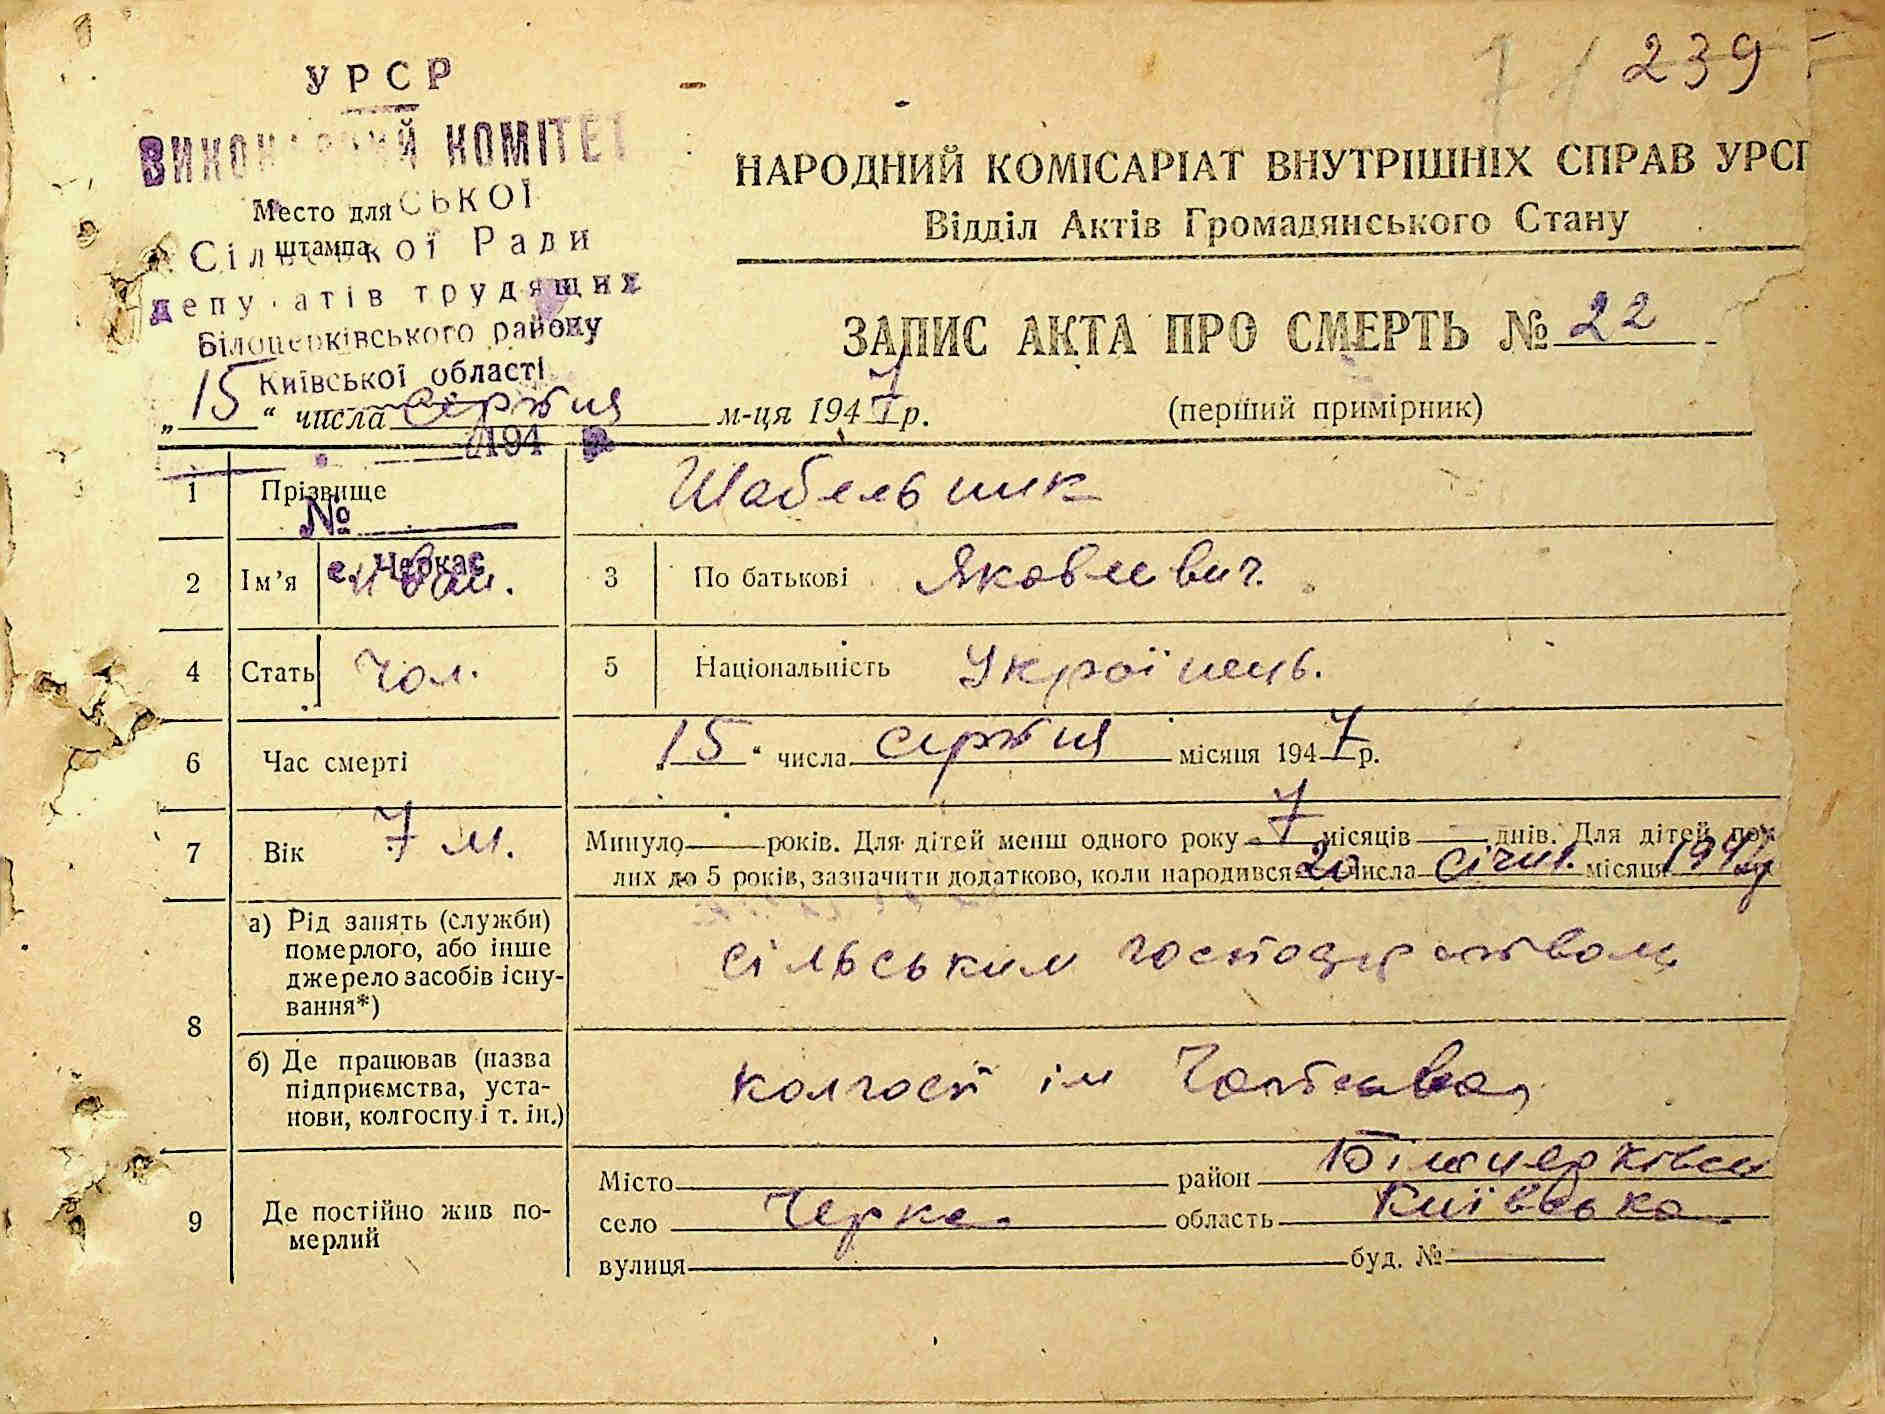 239
УРСР
ВИКОНАВЧИЙ КОМІТЕТ
Место для штампа
СЬКОЇ
Сільської Ради
депутатів трудящих
Білоцерківського району
Київської області
194
№
с. Черкас
НАРОДНИЙ КОМІСАРІАТ ВНУТРІШНІХ СПРАВ УРСР
Відділ Актів Громадянського Стану
ЗАПИС АКТА ПРО СМЕРТЬ № 22
(перший примірник)
„15“ числа серпня м-ця 1947 р.
1 Прізвище Шабельник
2 Ім’я Иван. 3 По батькові Яковлевич.
4 Стать чол. 5 Національність Українець.
6 Час смерті „15“ числа серпня місяця 1947 р.
7 Вік 7 м. Минуло років. Для дітей менш одного року 7 місяців днів. Для дітей
лих до 5 років, зазначити додатково, коли народився 20 числа січня місяця 1947
8 а) Рід занять (служби) померлого, або інше джерело засобів існу-вання*) сільським господарством
б) Де працював (назва підприємства, уста-нови, колгоспу і т. ін.) колгосп ім Чапаєва
9 Де постійно жив по-мерлий
Місто район Білоцерківськ
село Черкас область Київська.
вулиця буд. №